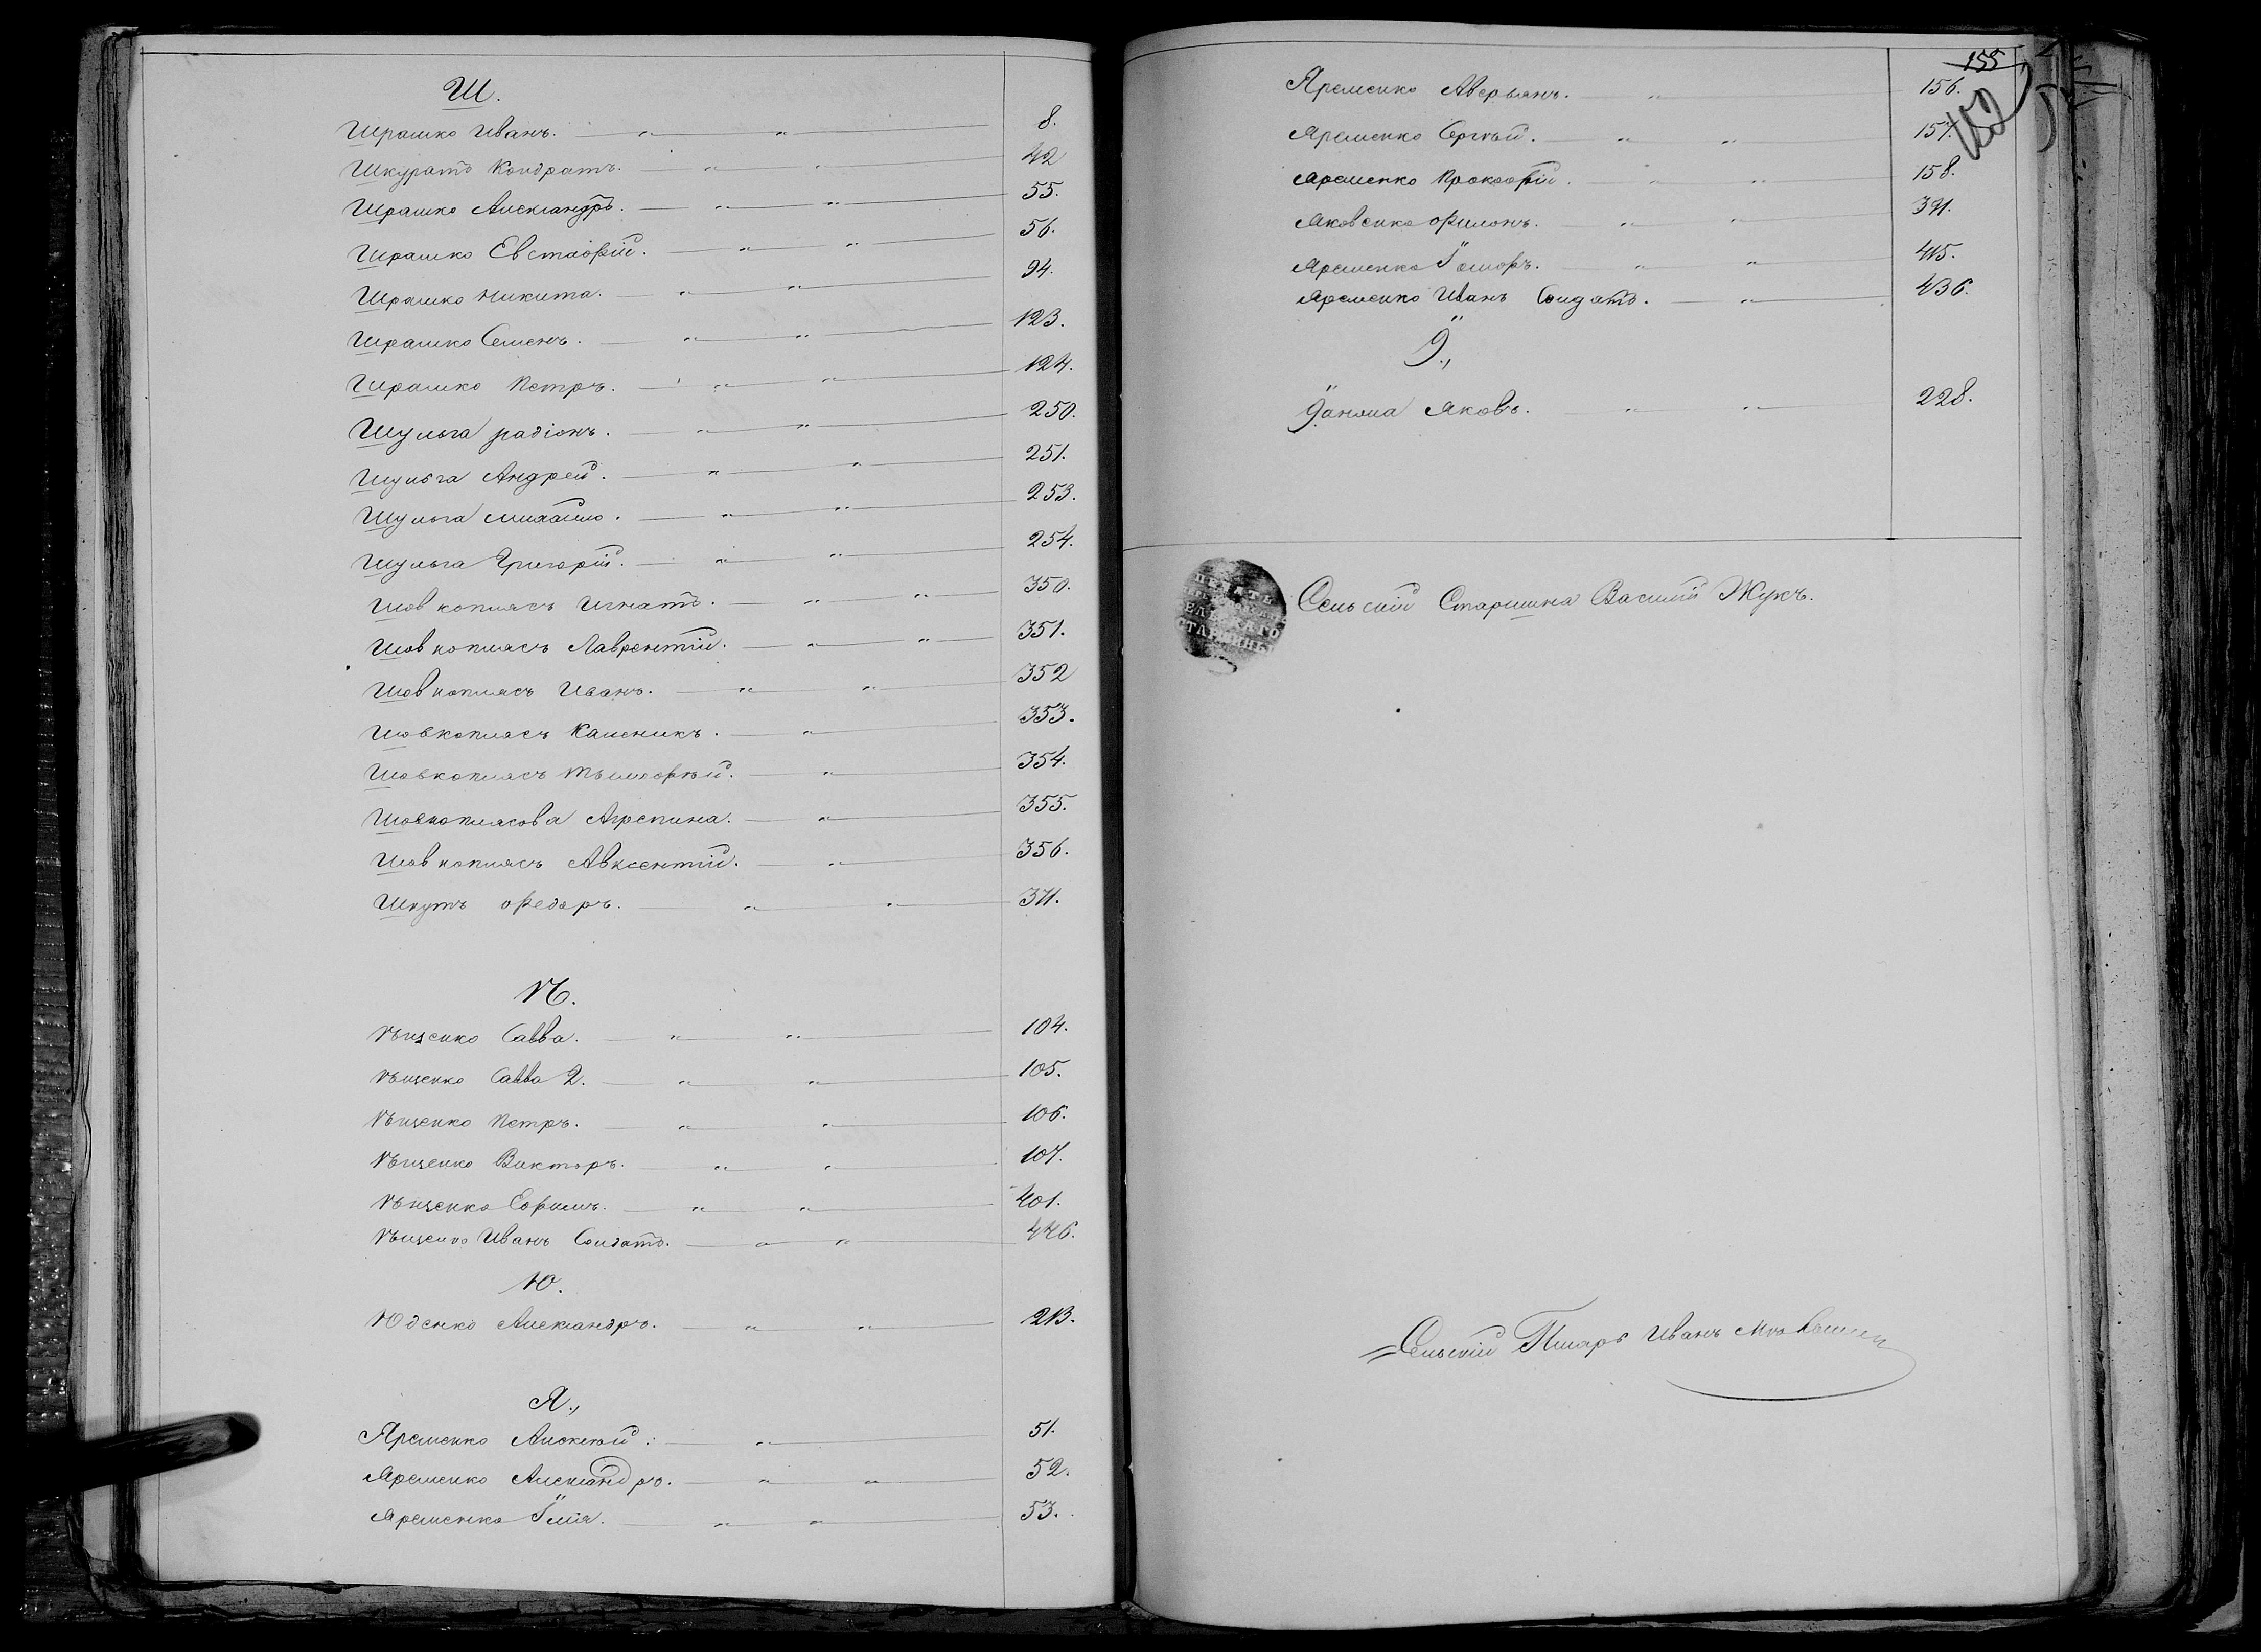 Ш.
Шрамко Иванъ. 8.
Шкуратъ Кондратъ. 42
Шрамко Александръ. 55.
Шрамко Евстафій. 56.
Шрамко Никита. 94.
Шрамко Семенъ. 123.
Шрамко Петръ. 124.
Шульга радіонъ. 250.
Шульга Андрей. 251.
Шульга Михайло. 253.
Шульга Григорій. 254.
Шовкоплясъ Игнатъ. 350.
Шовкоплясъ Лаврентій. 351.
Шовкоплясъ Иванъ. 352
Шовкоплясъ Каленикъ. 353.
Шовкоплясъ Тымофѣй. 354.
Шовкоплясова Агрепина. 355.
Шовкоплясъ Авксентій. 356.
Шкутъ Федоръ. 371.
Ѣ.
Ѣщенко Савва. 104.
Ѣщенко Савва 2. 105.
Ѣщенко Петръ. 106.
Ѣщенко Викторъ. 107.
Ѣщенко Ефимъ. 401.
Ѣщенко Иванъ Солдатъ. 446.
Ю.
Юденко Александръ. 213.
Я.,
Яременко Алексѣй: 51.
Яременко Александръ. 52.
Яременко Ілія. 53.
155
152
Яременко Аверьянъ. 156.
Яременко Сергѣй. 157.
Яременко Прокофій. 158.
Яковенко Филонъ. 391.
Яременко 415.
Яременко Иванъ Солдатъ. 436.
Яковъ. 228.
ПЕЧАТЬ
СТАРШИНЫ
Сельскій Старшина Василій Жукъ.
Сельскій Писарь Иванъ